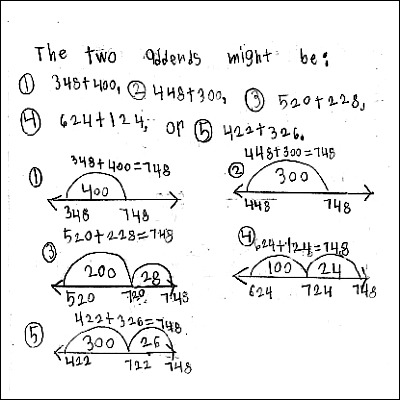 The two addends might be:
① 348+400, ② 448+300, ③ 520+228,
④ 624+124, or ⑤ 422+326.
① 348+400=748
400
348 748
② 448+300=748
300
448 748
③ 520+228=748
200 28
520 720 748
④ 624+124=748
100 24
624 724 748
⑤ 422+326=748
300 26
422 722 748